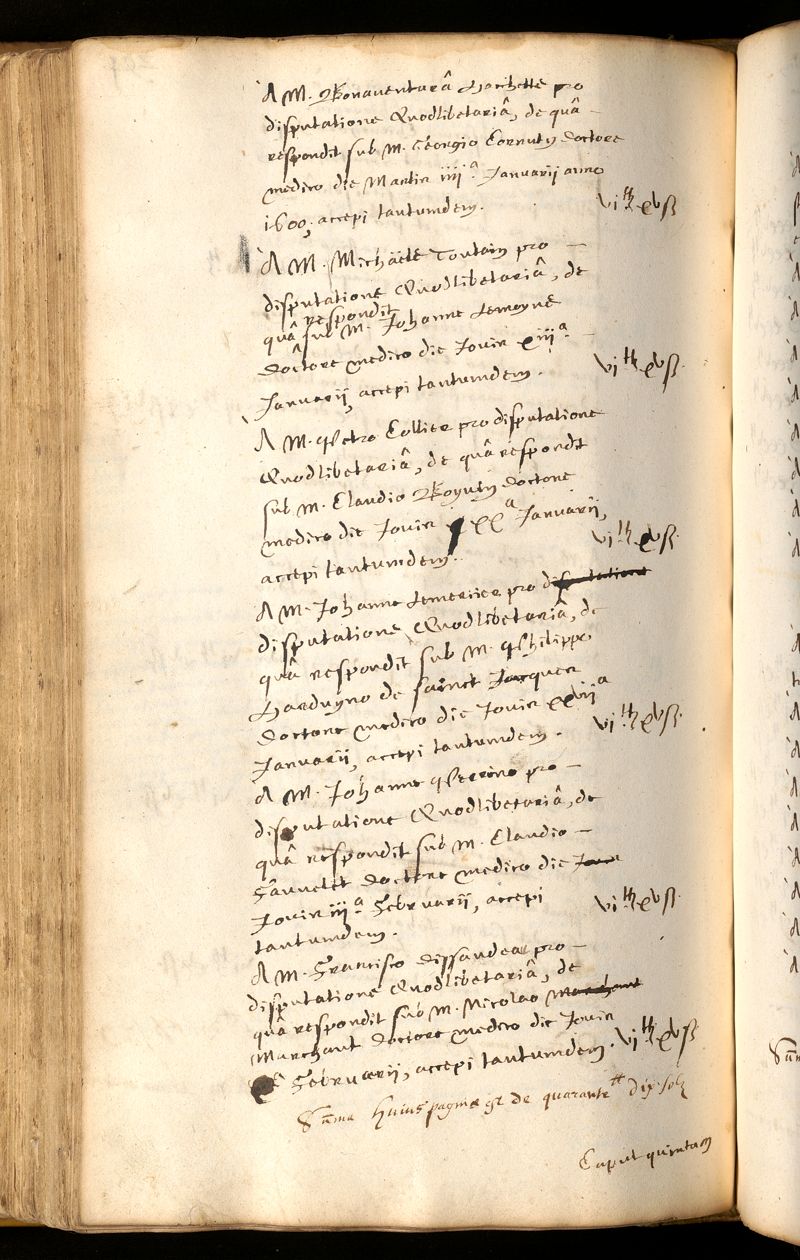 A M. Bonaventurâ Hachette pro
disputatione Quodlibetariâ, de quâ
respondit sub M. Georgio Cornuty doctore
medico die Martis iiii.ª Januarii anno
1600, accepi tantumdem. vi ₶ xvß
A M. Michaële Toutain pro
disputatione Quodlibetariâ, de
respondit
quâ sub M. Johanne Lemoyne
doctore medico die Jovis xiii.ª
Januarii, accepi tantumdem. vi ₶ xvß.
A M. Petro Collier pro disputatione
Quodlibetariâ, de quâ respondit
sub M. Claudio Bazin doctore
medico die Jovis xx.ª Januarii,
accepi tantumdem. vi ₶ xvß.
A M. Johanne Lemercier pro disputatione
disputatione Quodlibetariâ, de
quâ respondit sub M. Philippo
Harduyno de sainct Jacques
doctore medico die Jovis xxvii.ª
Januarii, accepi tantumdem. vi ₶ xvß.
A M. Johanne Perrino pro
disputatione Quodlibetariâ, de
quâ respondit sub M. Claudio
doctore medico die Jovis
Jovis iii.ª Februarii, accepi
tantumdem. vi ₶ xvß.
A M. Francisco pro
disputatione Quodlibetariâ, de
quâ respondit sub M. Nicolao Marchant
Marchant doctore medico die Jovis
Februarii, accepi tantumdem. vi ₶ xvß.
Sūma huius paginæ est de quarante ₶ dix solz
Caput quintum